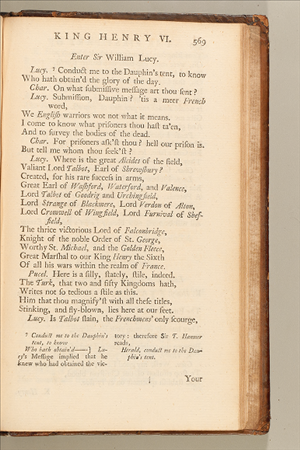 KING HENRY VI. 569
Enter Sir William Lucy.
Lucy. ² Conduct me to the Dauphin's tent, to know
Who hath obtain'd the glory of the day.
Char. On what submissive message art thou sent?
Lucy. Submission, Dauphin? 'tis a meer French
word,
We English warriors wot not what it means.
I come to know what prisoners thou hast ta'en,
And to survey the bodies of the dead.
Char. For prisoners ask'st thou? hell our prison is.
But tell me whom thou seek'st?
Lucy. Where is the great Alcides of the field,
Valiant Lord Talbot, Earl of Shrewsbury?
Created, for his rare success in arms,
Great Earl of Washford, Waterford, and Valence,
Lord Talbot of Goodrig and Urchingfield,
Lord Strange of Blackmere, Lord Verdon of Alton,
Lord Cromwell of Wingfield, Lord Furnival of Shef-
field,
The thrice victorious Lord of Falconbridge,
Knight of the noble Order of St. George,
Worthy St. Michael, and the Golden Fleece,
Great Marshal to our King Henry the Sixth
Of all his wars within the realm of France.
Pucel. Here is a silly, stately, stile, indeed.
The Turk, that two and fifty Kingdoms hath,
Writes not so tedious a stile as this.
Him that thou magnify'st with all these titles,
Stinking, and fly-blown, lies here at our feet.
Lucy. Is Talbot slain, the Frenchmens' only scourge,
² Conduct me to the Dauphin's
tent, to know
Who hath obtain'd——] Lu-
cy's Message implied that he
knew who had obtained the vic-
tory: therefore Sir T. Hanmer
reads,
Herald, conduct me to the Dau-
phin's tent.
Your